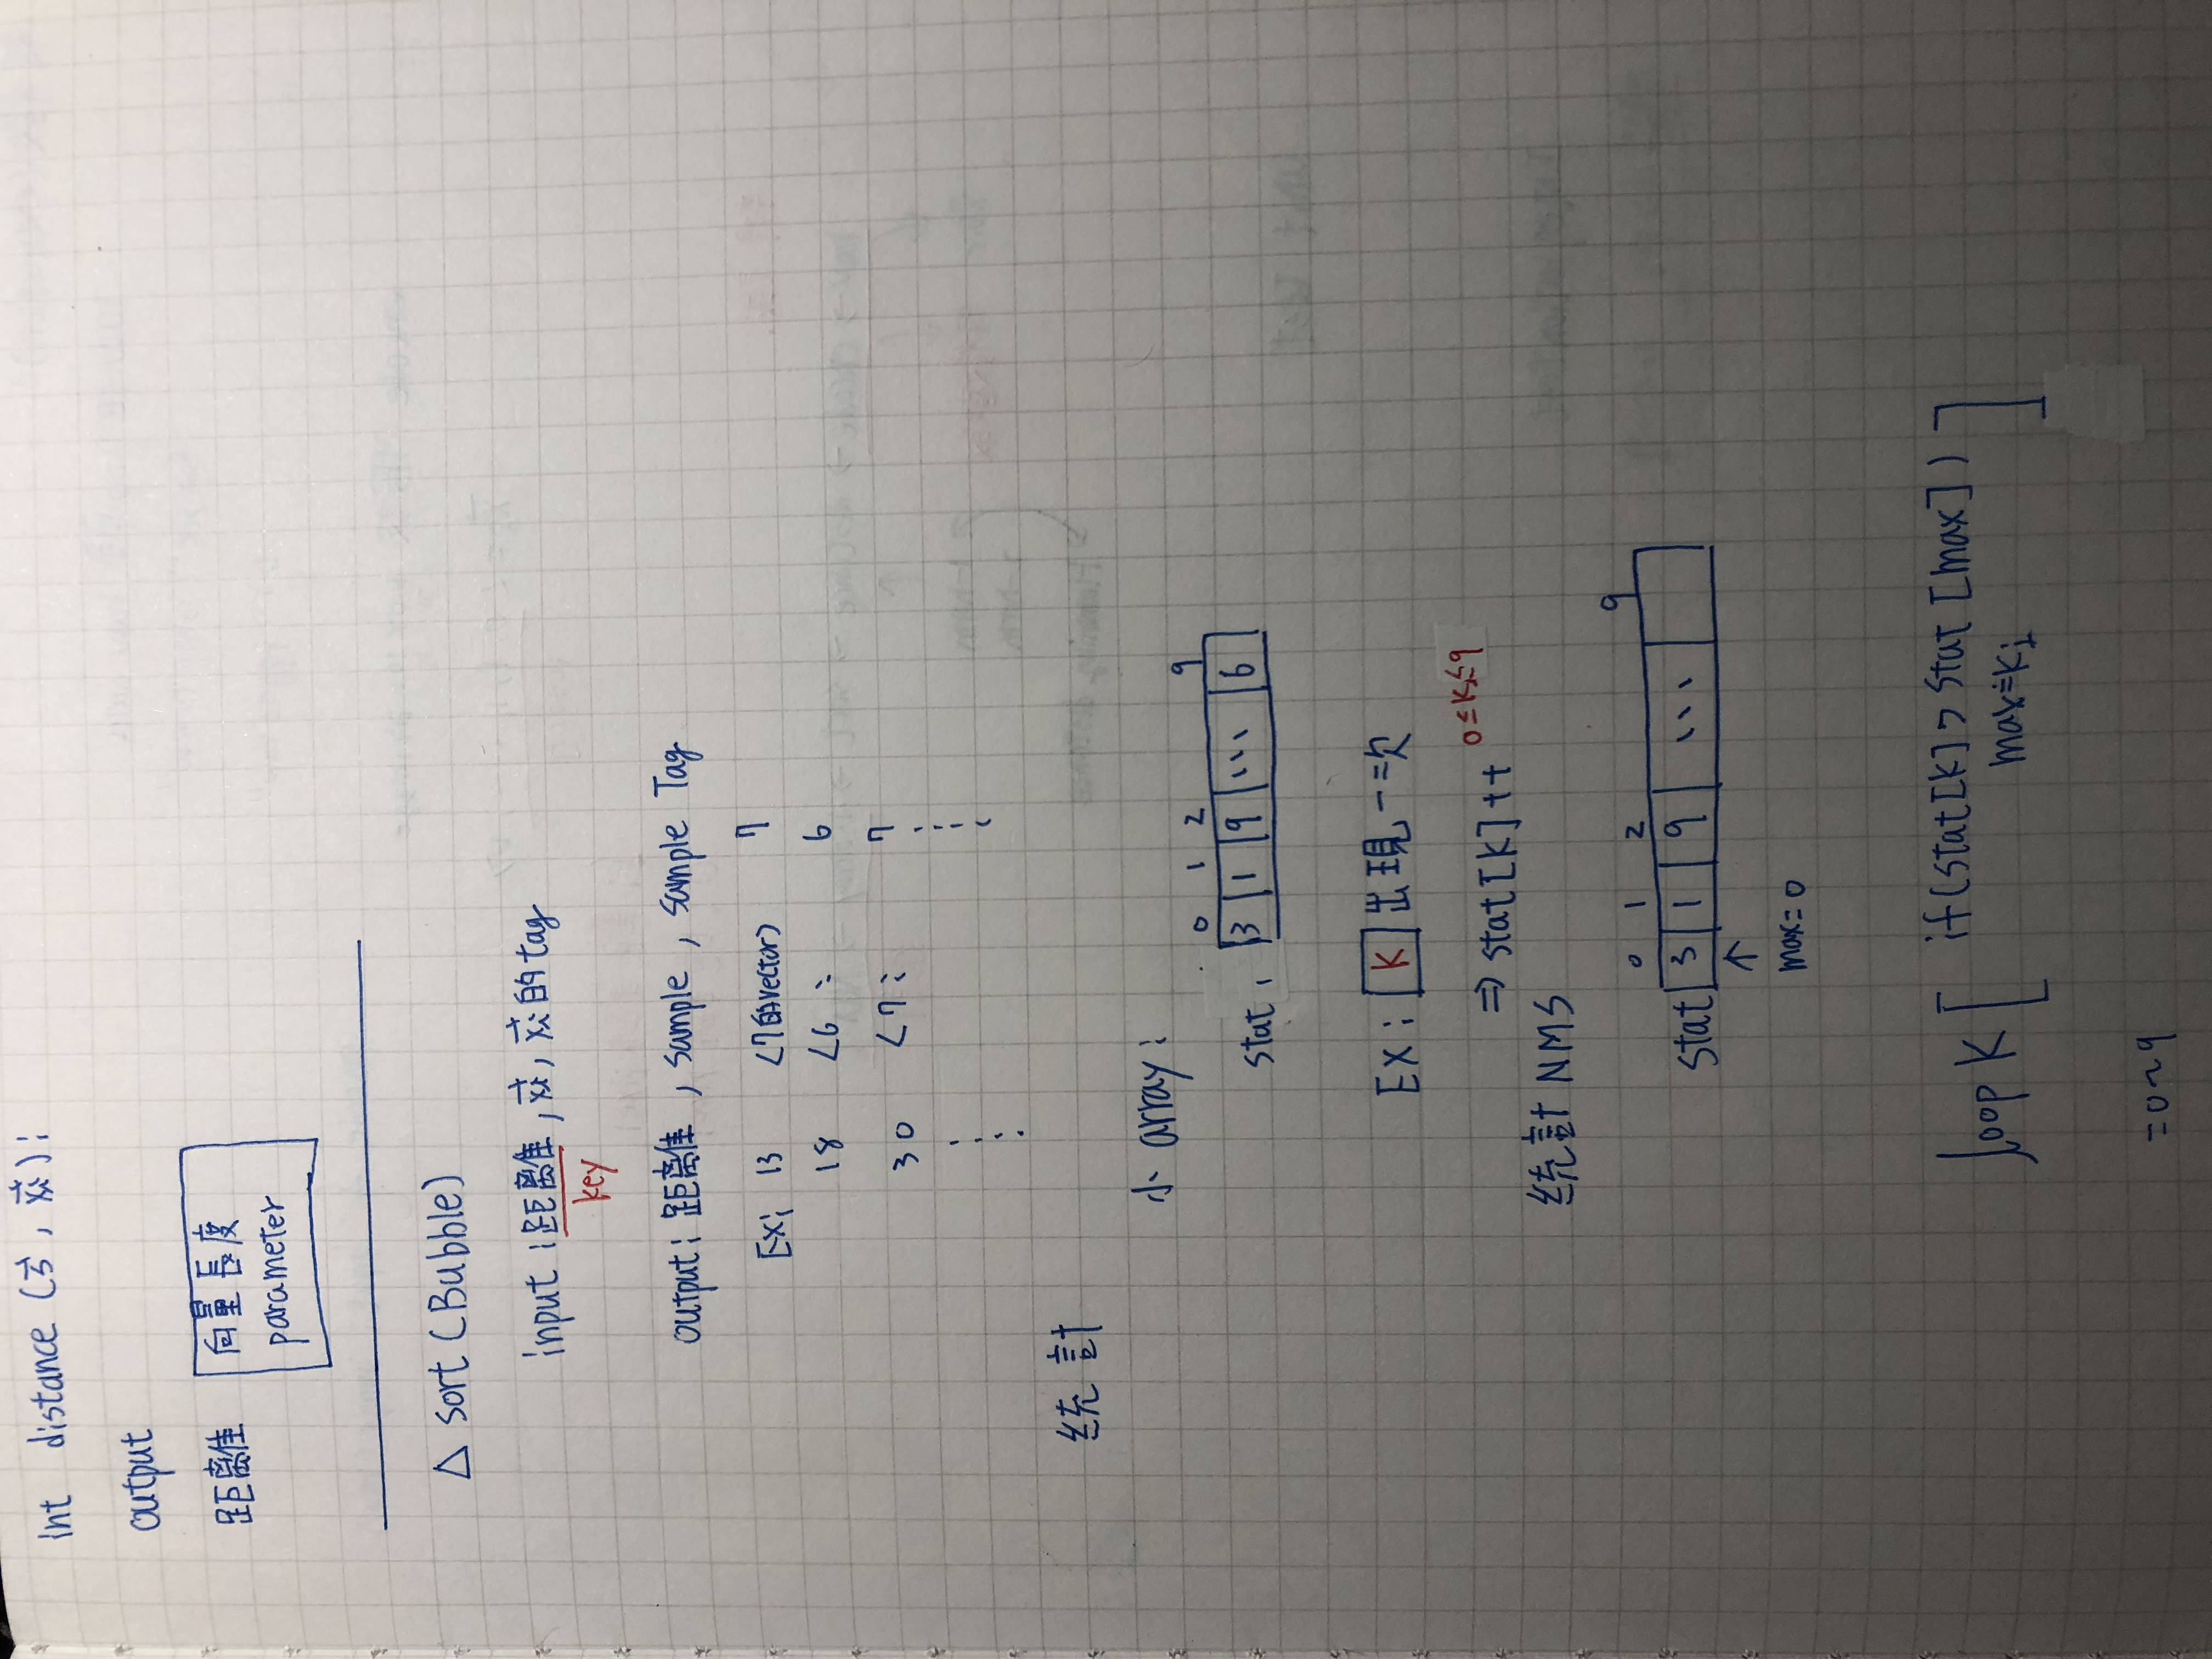 int distance (s⃗, x⃗i);
output
距離 向量長度
parameter
△ sort (Bubble)
input : 距離, x⃗i, x⃗i 的 tag
key
output: 距離, sample, sample Tag
Ex: 13 <7的vector> 7
18 <6 : 6
30 <7 : 7
統計
小 array :
0 1 2 9
stat, 3 1 9 ... 6
Ex : K 出現一次
⇒ stat[K]++ 0≤K≤9
統計 NMS
0 1 2 9
stat 3 1 9 ...
↑
max=0
loop K [ if(stat[K] > stat [max]) ]
max=K;
=0~9